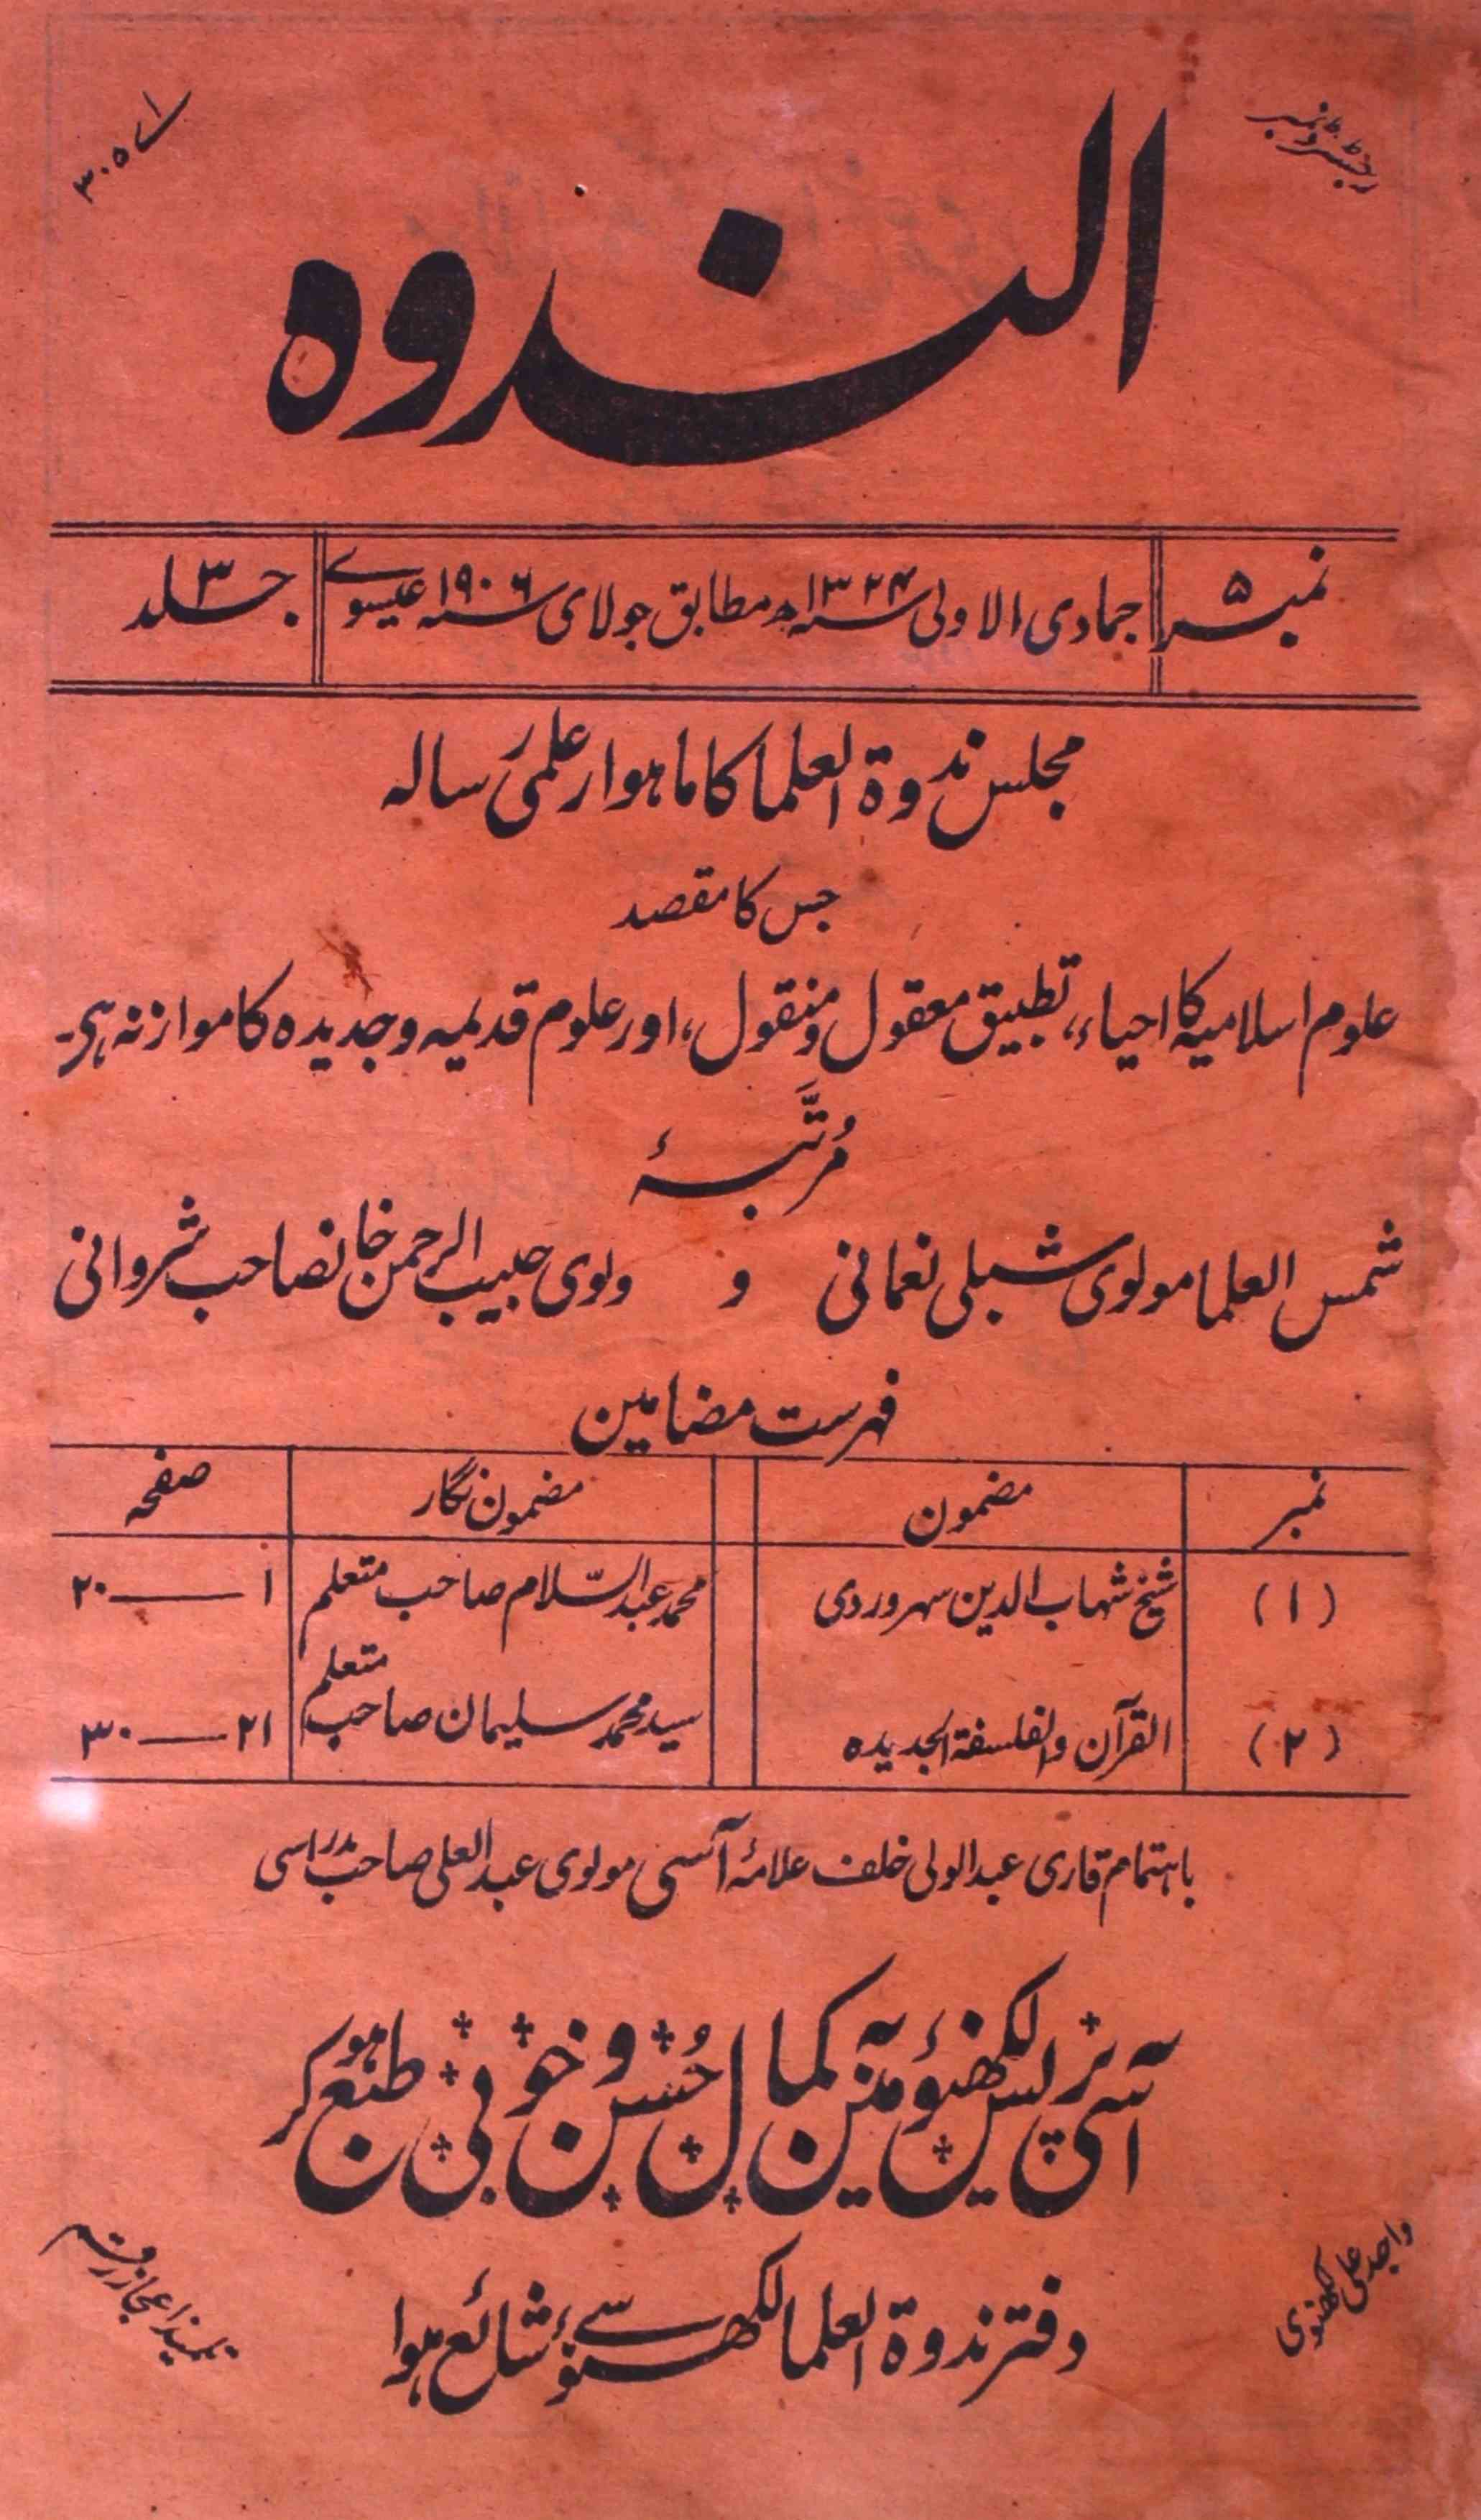 رجسٹرڈ نمبر
اے ۳۰۵
الندوہ
نمبر ۵
جمادی الاولی سنہ ۱۳۲۴ھ مطابق جولائی سنہ ۱۹۰۶ عیسوی
جلد ۳
مجلس ندوۃ العلما کا ماہوار علمی رسالہ
جس کا مقصد
علوم اسلامیہ کا احیاء، تطبیق معقول و منقول، اور علوم قدیمیہ و جدیدہ کا موازنہ ہی۔
مُرتَّبۂ
شمس العلما مولوی شبلی نعمانی و ولوی حبیب الرحمن خانصاحب شروانی
فہرست مضامین
نمبر مضمون مضمون نگار صفحہ
(۱) شیخ شہاب الدین سہروردی محمد عبدالسّلام صاحب متعلم ۱ — ۲۰
(۲) القرآن والفلسفۃ الجدیدہ سید محمد سلیمان صاحب متعلم ۲۱ — ۳۰
باہتمام قاری عبدالولی خلف علامۂ آسی مولوی عبدالعلی صاحب مدراسی
آسی پریس لکھنؤ مین کمال حُسن و خوبی طبع ہو کر
دفتر ندوۃ العلما لکھنؤ سے شائع ہوا
واجد علی لکھنوی
تلمیذ اعجاز رقم